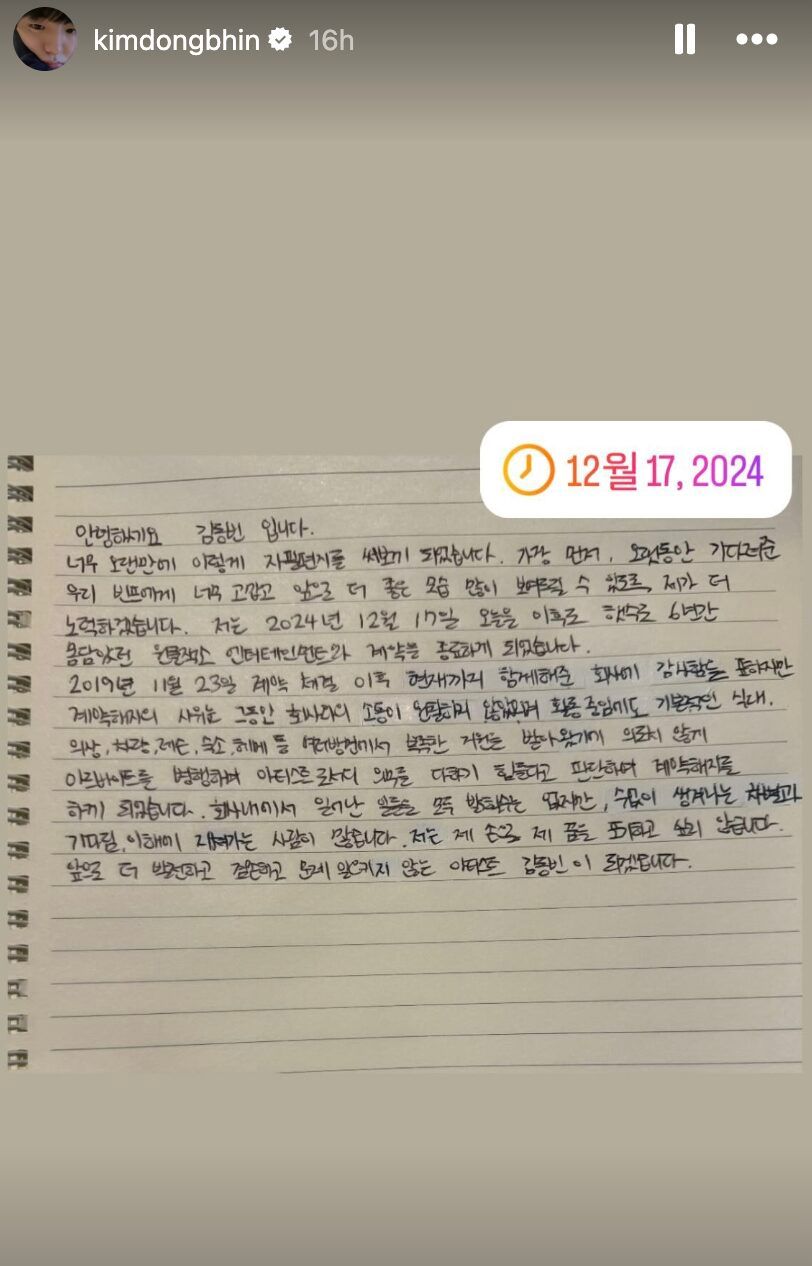 kimdongbhin 16h
12월 17, 2024
안녕하세요 김동빈 입니다.
너무 오랜만에 이렇게 자필편지를 써보게 되었습니다. 가장 먼저, 오랫동안 기다려준
우리 빈프에게 너무 고맙고 앞으로 더 좋은 모습 많이 보여드릴 수 있도록, 제가 더
노력하겠습니다. 저는 2024년 12월 17일 오늘을 이후로 햇수로 6년간
몸담았던 위클래스 엔터테인먼트와 계약을 종료하게 되었습니다.
2019년 11월 23일 계약 체결 이후 현재까지 함께해준 회사에 감사함을 표하지만
계약해지의 사유는 그동안 회사와의 소통이 원활하지 않았으며 활동중임에도 기본적인 식대,
의상, 차량, 레슨, 숙소, 헤메 등 여러방면에서 부족한 지원을 받아왔기에 의도치 않게
아르바이트를 병행하며 아티스트로서의 의무를 다하기 힘들다고 판단하여 계약해지를
하게 되었습니다. 회사내에서 일어난 일들을 모두 밝힐수는 없지만, 수없이 생겨나는 차별과
기다림, 이해에 지쳐가는 사람이 많습니다. 저는 제 손으로 제 꿈을 포기하고 싶지 않습니다.
앞으로 더 발전하고 겸손하고 문제 일으키지 않는 아티스트 김동빈이 되겠습니다.